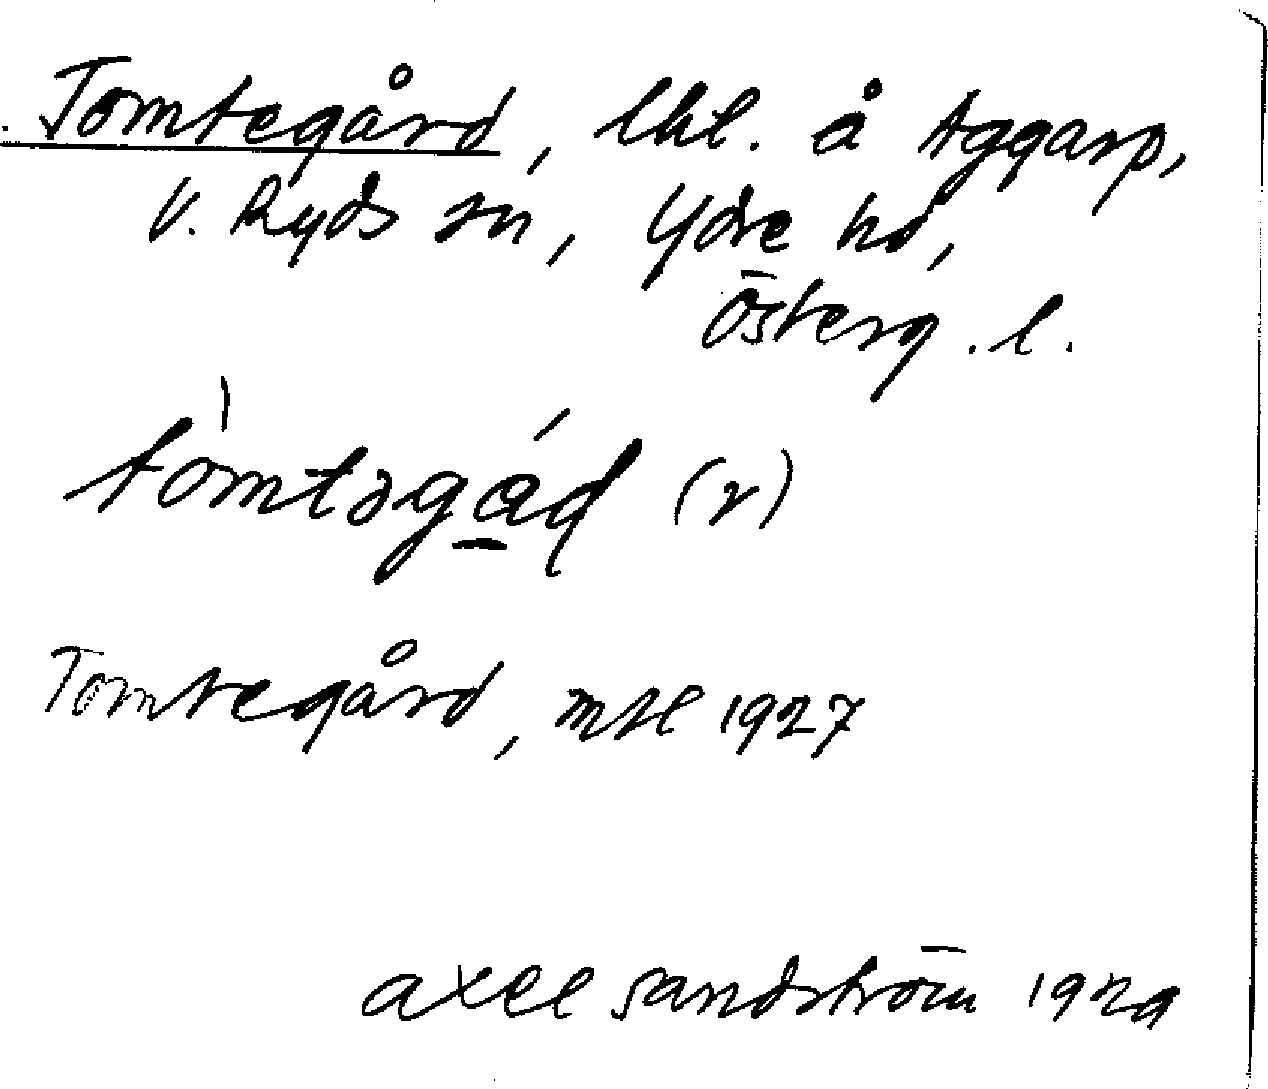 Tomtegård, lht. å Aggarp,
V. Ryds sn, Ydre hd,
Österg. l.
tòmtəgá̱d (r)
Tomtegård, mtl 1927
Axel Sandström 1929